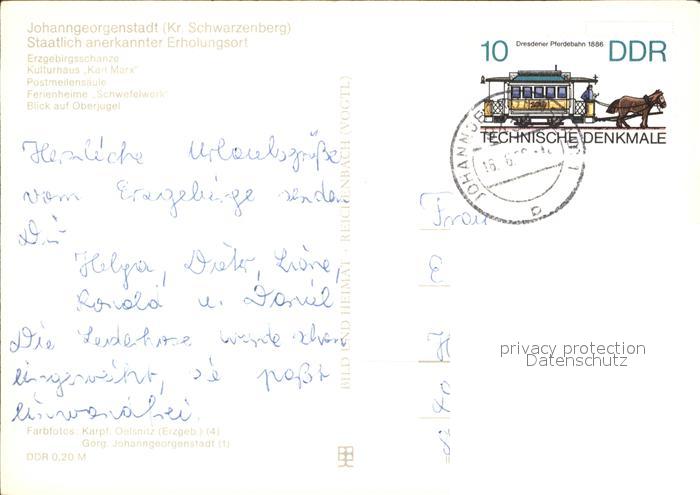 Johanngeorgenstadt (Kr. Schwarzenberg)
Staatlich anerkannter Erholungsort
Erzgebirgsschanze
Kulturhaus „Karl Marx"
Postmeilensäule
Ferienheime „Schwefelwerk"
Blick auf Oberjugel
10 Dresdener Pferdebahn 1886 DDR
TECHNISCHE DENKMALE
Herzliche Urlaubsgrüße
vom Erzgebirge senden
Dir
Helga, Dieter, Liane,
Ronald u. Daniel
Die Lederhose wurde schon
eingeweiht, sie paßt
einwandfrei.
Farbfotos: Karpf, Oelsnitz (Erzgeb.) (4)
Gorg, Johanngeorgenstadt (1)
DDR 0,20 M
BILD UND HEIMAT · REICHENBACH (VOGTL)
Frau
E
H
privacy protection
Datenschutz